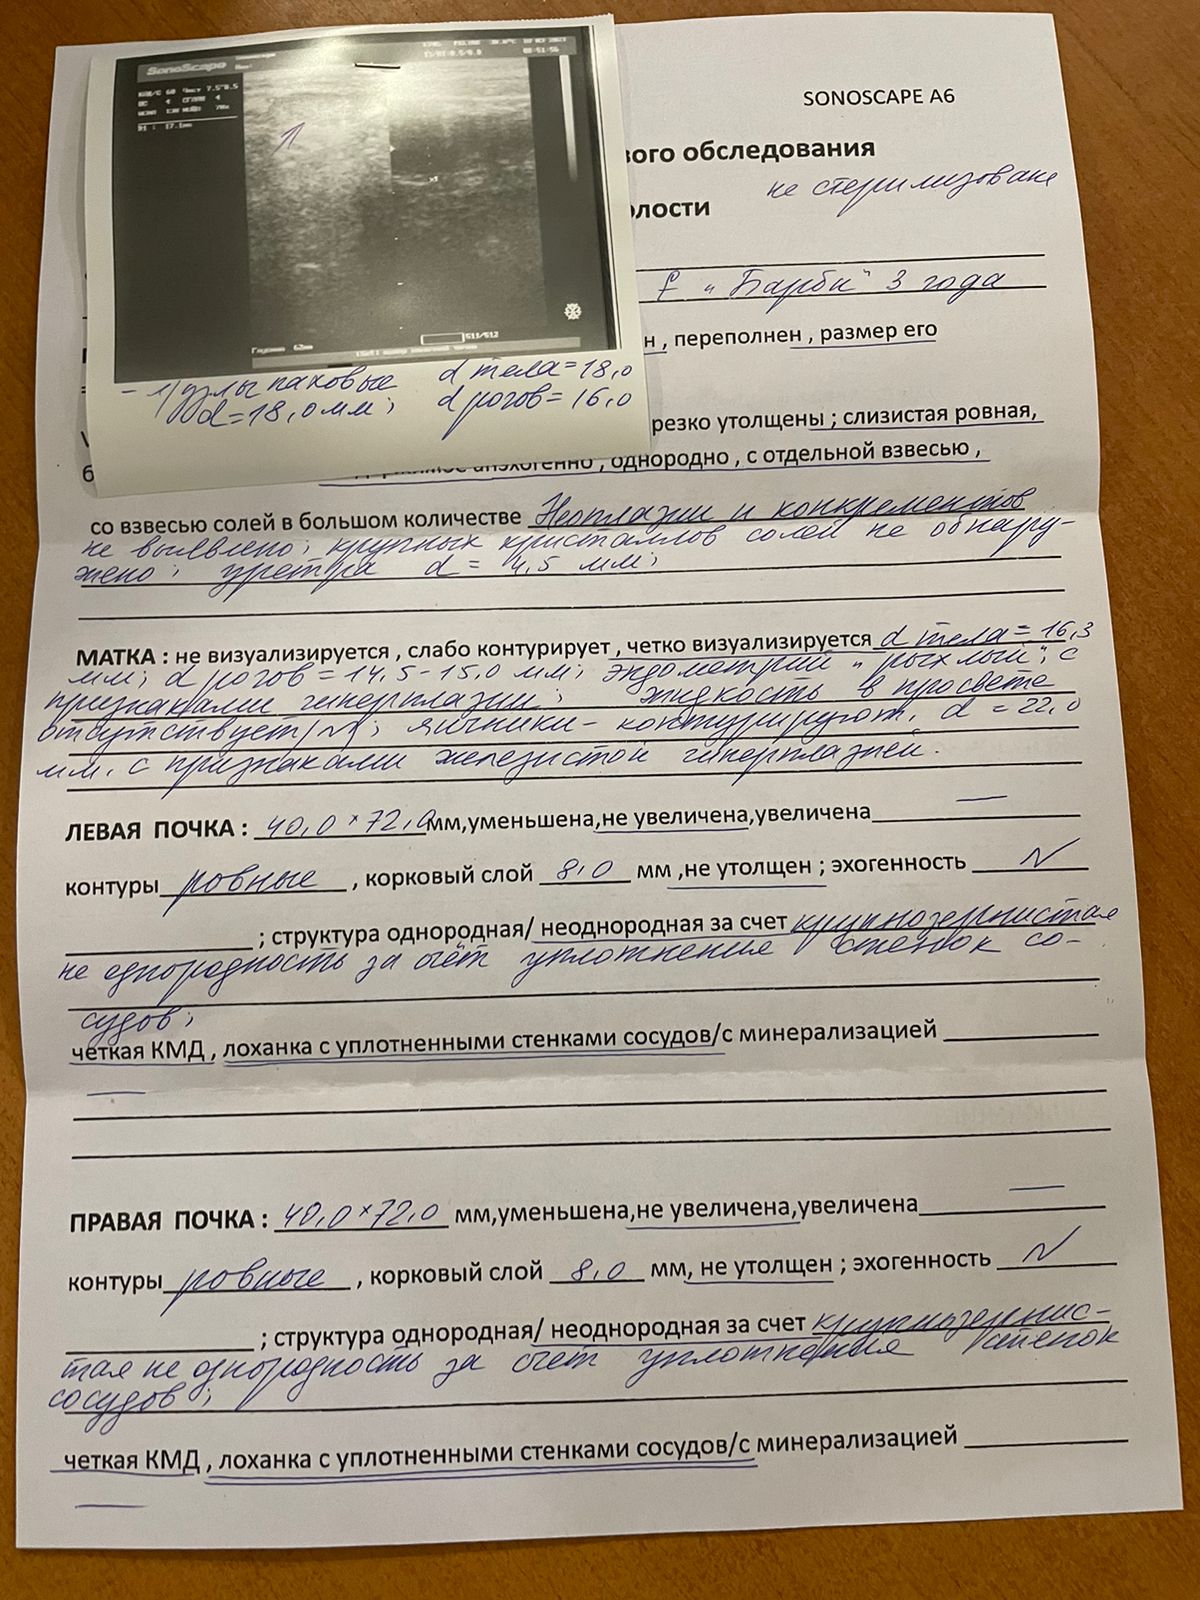 SonoScape
SONOSCAPE A6
вого обследования
не стерилизована
олости
f "Барби" 3 года
н , переполнен , размер его
– узлы паховые d тела = 18,0
d = 18,0 мм; d рогов = 16,0
резко утолщены ; слизистая ровная,
анэхогенно , однородно , с отдельной взвесью ,
со взвесью солей в большом количестве Неоплазии и конкрементов
не выявлено; крупных кристаллов солей не обнару-
жено; уретра d = 4,5 мм;
МАТКА : не визуализируется , слабо контурирует , четко визуализируется d тела = 16,3
мм; d рогов = 14,5 - 15,0 мм; эндометрий "рыхлый"; с
признаками гиперплазии; жидкость в просвете
отсутствует/N; яичники - контурируют, d = 22,0
мм. с признаками железистой гиперплазией.
ЛЕВАЯ ПОЧКА : 40,0 × 72,0 мм,уменьшена,не увеличена,увеличена —
контуры ровные , корковый слой 8,0 мм ,не утолщен ; эхогенность N
; структура однородная/ неоднородная за счет крупнозернистая
не однородность за счёт уплотнения стенок со-
судов;
четкая КМД , лоханка с уплотненными стенками сосудов/с минерализацией
—
ПРАВАЯ ПОЧКА : 40,0 × 72,0 мм,уменьшена,не увеличена,увеличена —
контуры ровные , корковый слой 8,0 мм, не утолщен ; эхогенность N
; структура однородная/ неоднородная за счет крупнозернис-
тая не однородность за счет уплотнения стенок
сосудов;
четкая КМД , лоханка с уплотненными стенками сосудов/с минерализацией
—